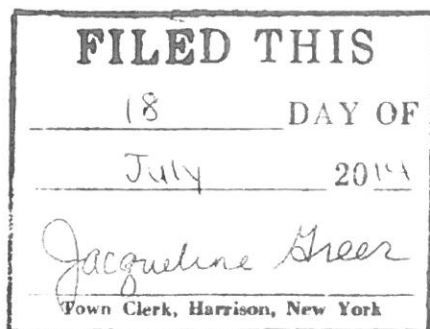 FILED THIS
18 DAY OF
July 2014
Jacqueline Greer
Town Clerk, Harrison, New York